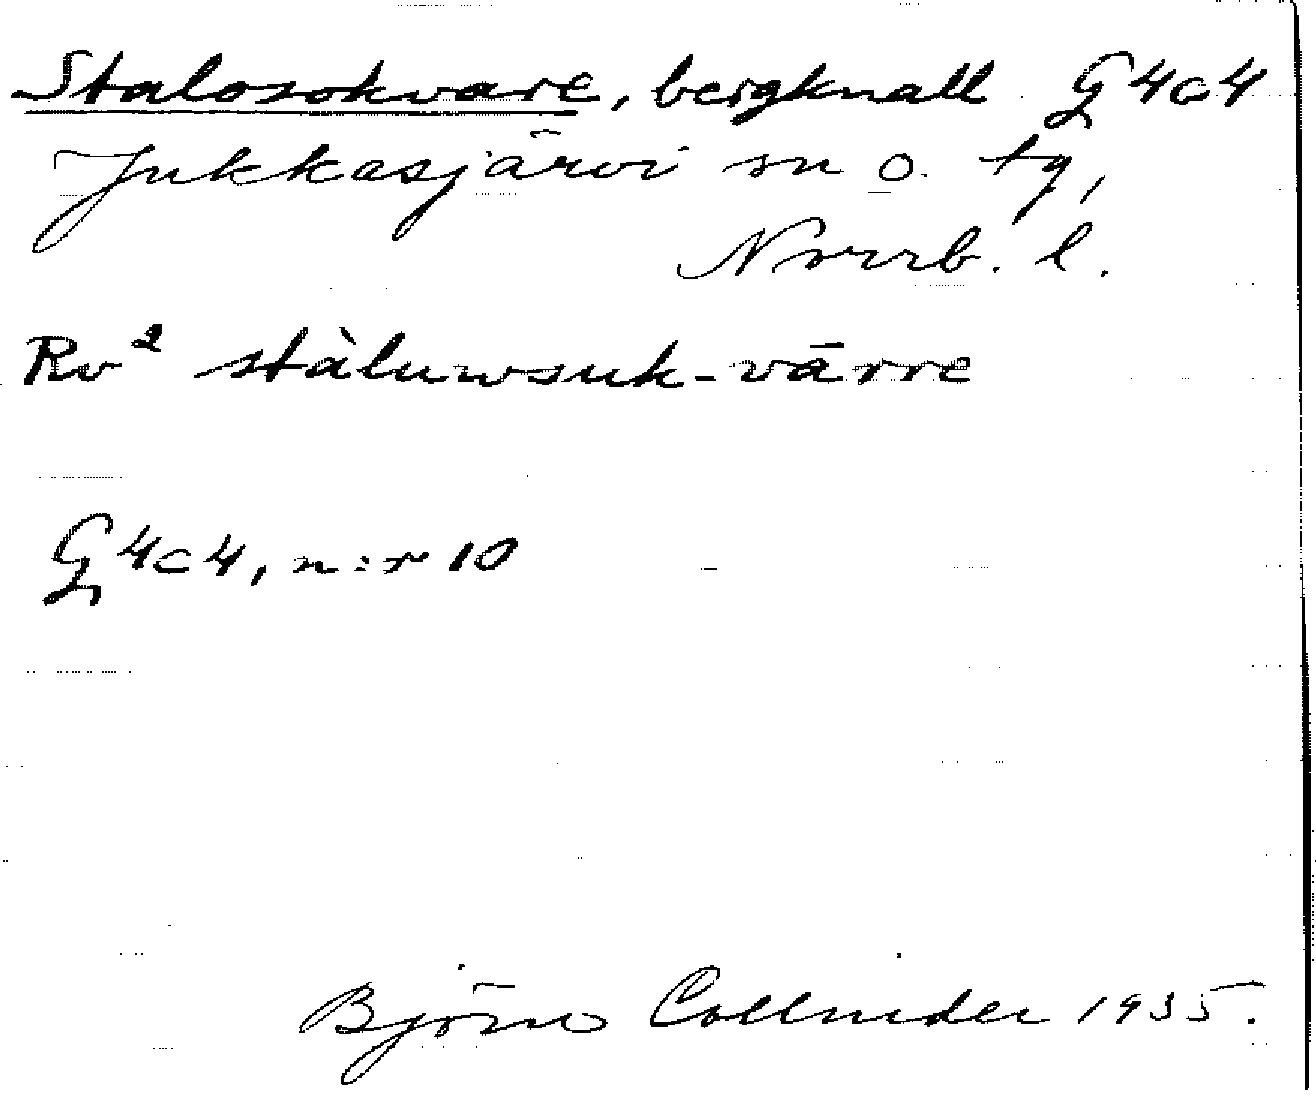 Stalosokvare, bergknall G4c4
Jukkasjärvi sn o. tg,
Norrb. l.
Rv² stàluwsuk-vārre
G4c4, n:r 10
Björn Collinder 1935.